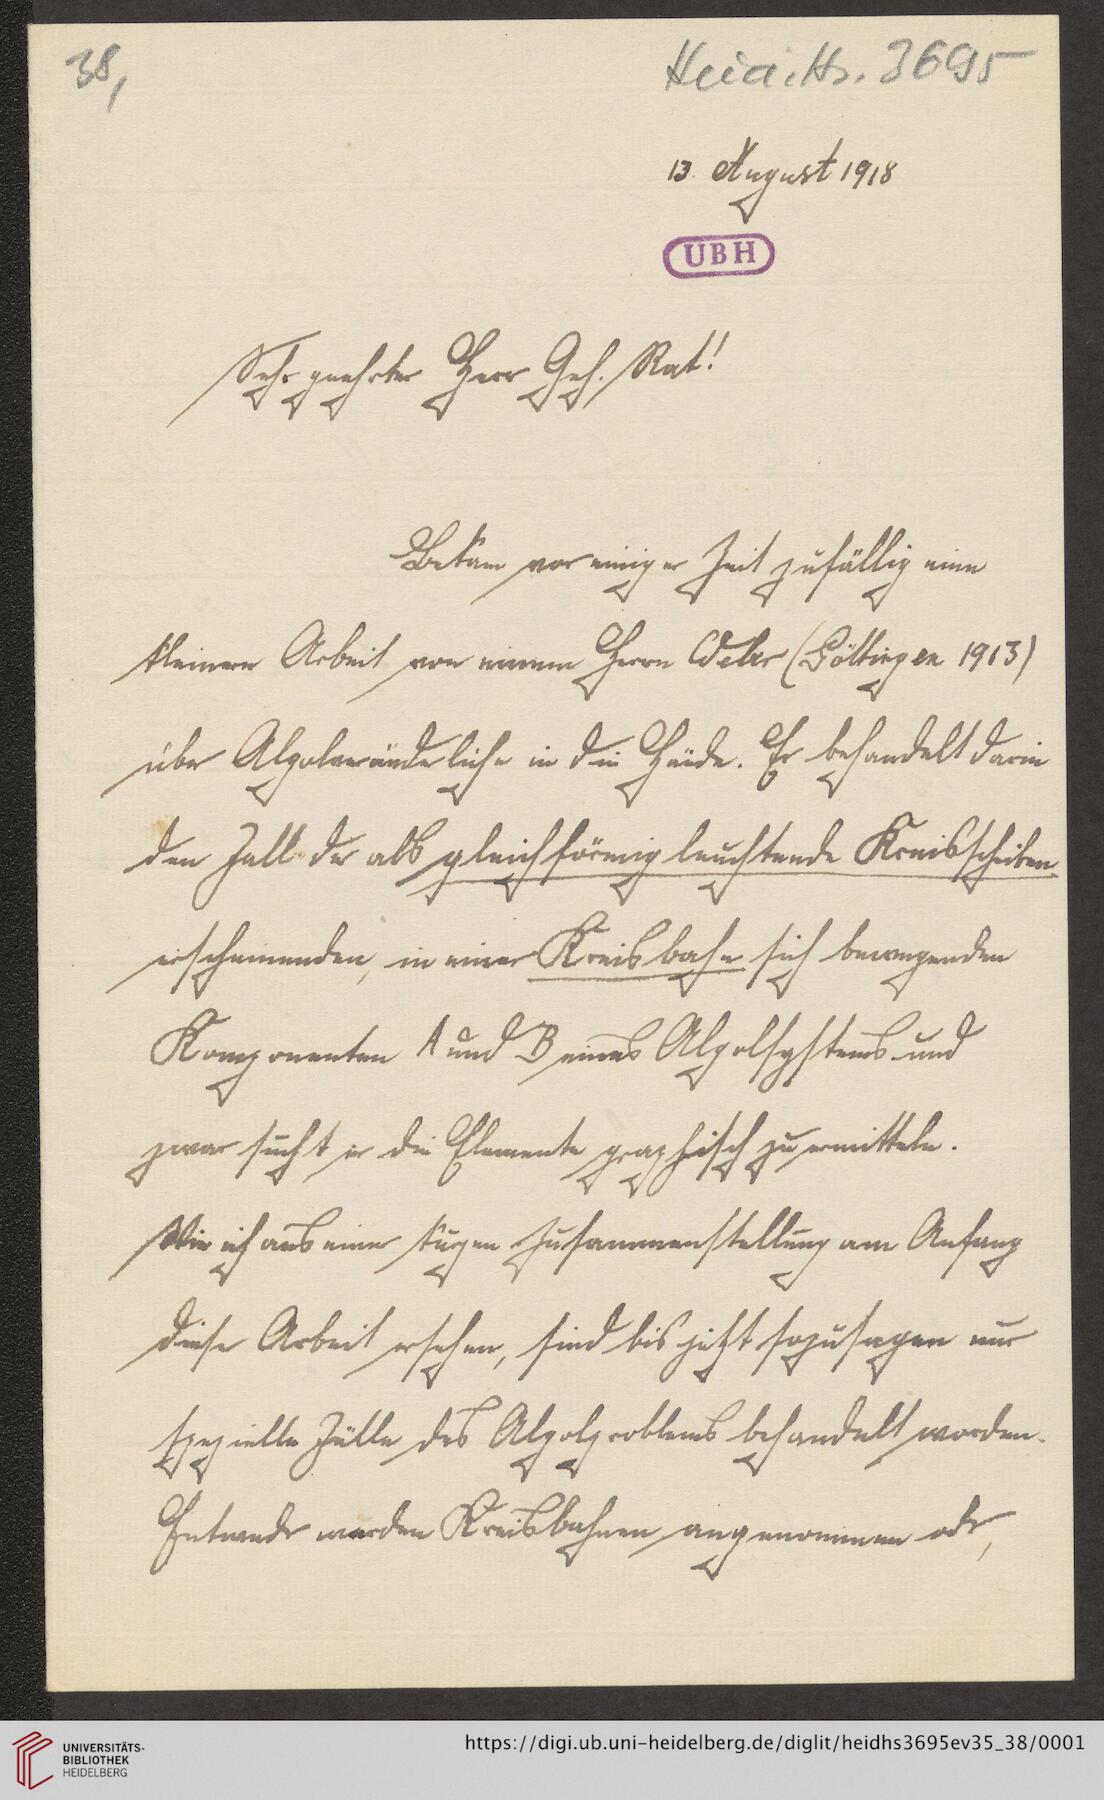 38,
Heid. Hs. 3695
13. August 1918
UBH
Sehr geehrter Herr Geh. Rat!
Bekam vor einiger Zeit zufällig eine
kleinere Arbeit von einem Herrn (Göttingen 1913)
über Algolveränderliche in die Hände. Er behandelt darin
den Fall der als gleichförmig leuchtende Kreisscheiben
erscheinenden, in einer Kreisbahn sich bewegenden
Komponenten A und B eines Algolsystems und
zwar sucht er die Elemente graphisch zu ermitteln.
Wie ich aus einer kurzen Zusammenstellung am Anfang
dieser Arbeit ersehen, sind bis jetzt sozusagen nur
spezielle Fälle des Algolproblems behandelt worden.
Entweder werden Kreisbahnen angenommen oder,
UNIVERSITÄTS-
BIBLIOTHEK
HEIDELBERG
https://digi.ub.uni-heidelberg.de/diglit/heidhs3695ev35_38/0001